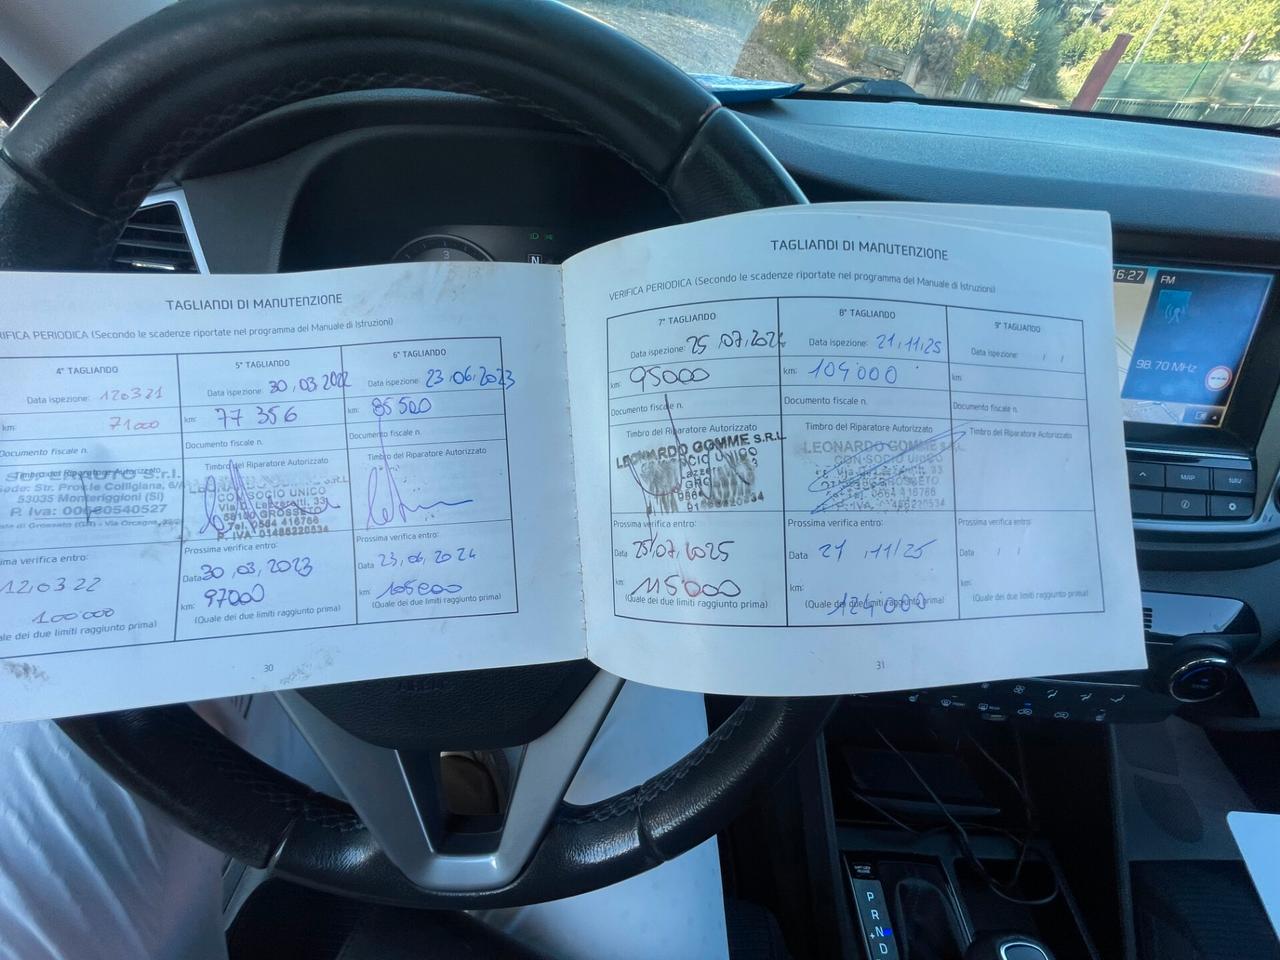 TAGLIANDI DI MANUTENZIONE
RIFICA PERIODICA (Secondo le scadenze riportate nel programma del Manuale di Istruzioni)
4° TAGLIANDO
Data ispezione: 12 03 21
km: 71000
Documento fiscale n.
Timbro del Riparatore Autorizzato
53035 Monteriggioni (SI)
P. Iva: 00660540527
sima verifica entro:
12.03 22
100'000
ale dei due limiti raggiunto prima)
5° TAGLIANDO
Data ispezione: 30.03 2022
km: 77 356
Documento fiscale n.
Timbro del Riparatore Autorizzato
CON SOCIO UNICO
58100 GROSSETO
Tel. 0564 416766
P. IVA: 01486220534
Prossima verifica entro:
Data 30, 03, 2023
km: 97000
(Quale dei due limiti raggiunto prima)
6° TAGLIANDO
Data ispezione: 23.06.2023
km: 85500
Documento fiscale n.
Timbro del Riparatore Autorizzato
Prossima verifica entro:
Data 23, 06, 2024
km: 105000
(Quale dei due limiti raggiunto prima)
30
TAGLIANDI DI MANUTENZIONE
VERIFICA PERIODICA (Secondo le scadenze riportate nel programma del Manuale di Istruzioni)
7° TAGLIANDO
Data ispezione: 25.07.2024
km: 95000
Documento fiscale n.
Timbro del Riparatore Autorizzato
LEONARDO GOMME S.R.L
SOCIO UNICO
Prossima verifica entro:
Data 25/07/2025
km: 115000
(Quale dei due limiti raggiunto prima)
8° TAGLIANDO
Data ispezione: 21.11.25
km: 104'000
Documento fiscale n.
Timbro del Riparatore Autorizzato
LEONARDO GOMME S.R.L.
CON SOCIO UNICO
58100 GROSSETO
Tel. 0564 416766
P. IVA: 01486220534
Prossima verifica entro:
Data 21, 11/25
km: 124'000
(Quale dei due limiti raggiunto prima)
9° TAGLIANDO
Data ispezione: / /
km:
Documento fiscale n.
Timbro del Riparatore Autorizzato
Prossima verifica entro:
Data / /
km:
(Quale dei due limiti raggiunto prima)
31
16:27
FM
98.70 MHz
MAP
NAV
3
N
P
R
N
D